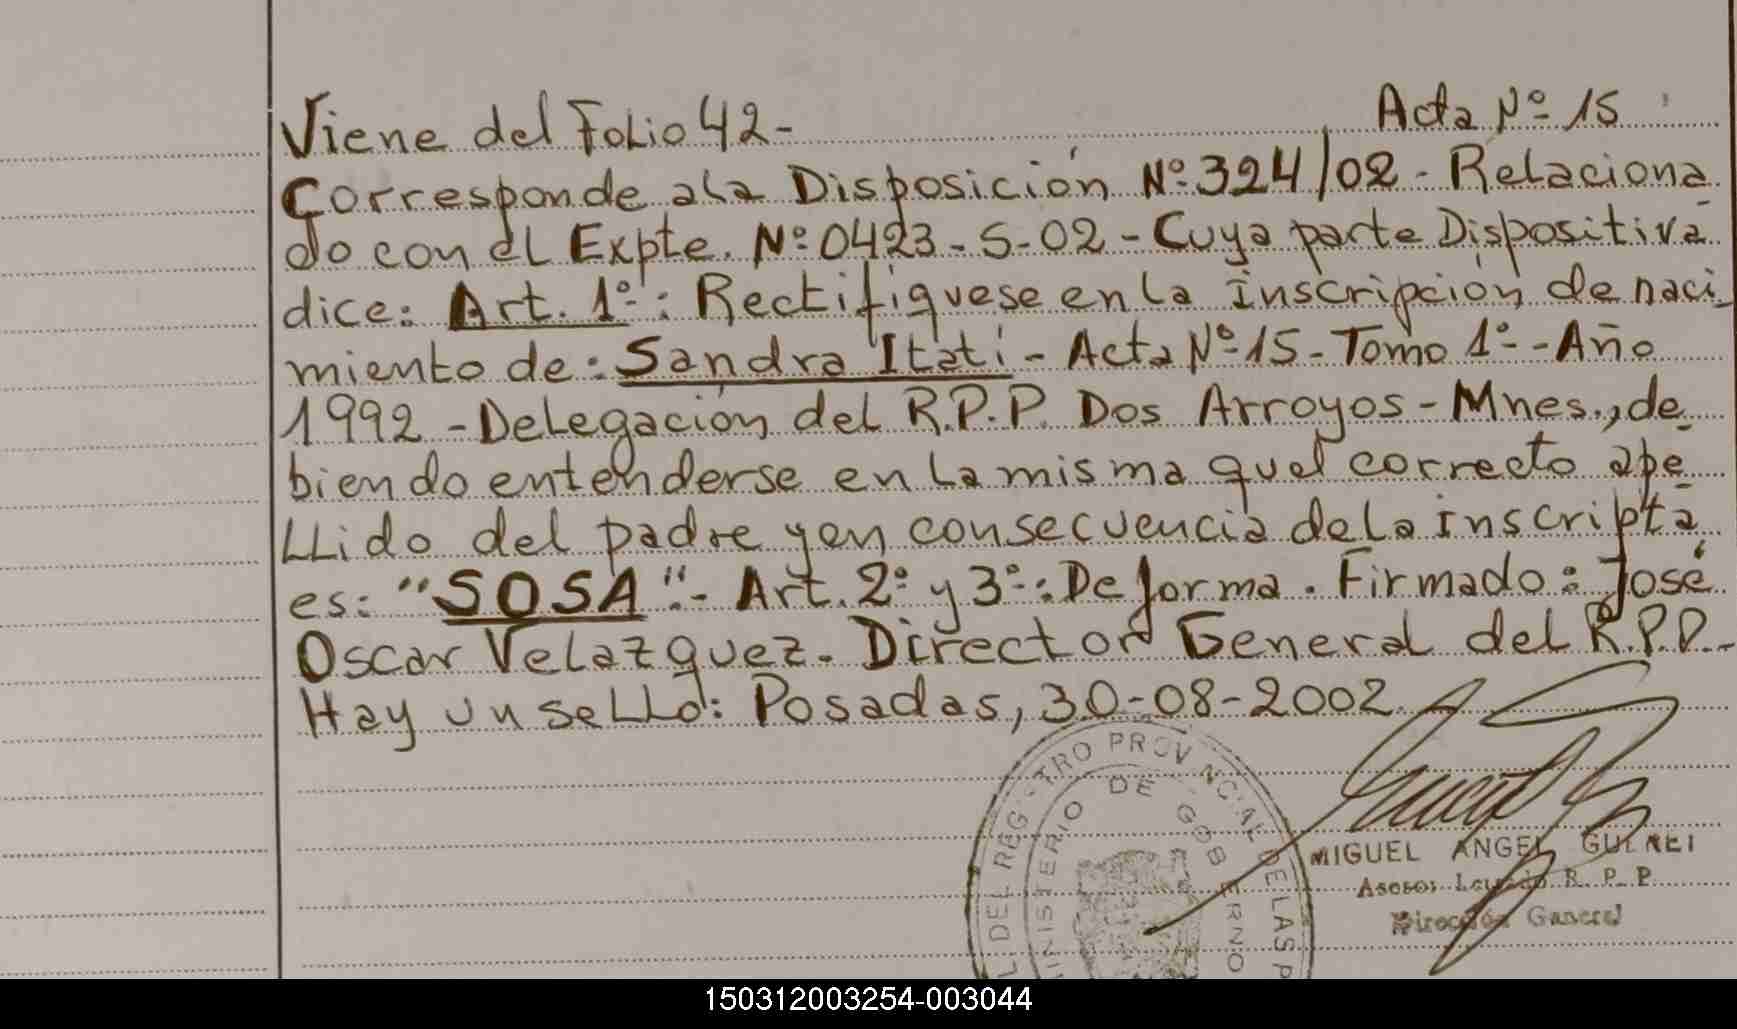 Viene del Folio 42- Acta Nº 15
Corresponde a la Disposición Nº 324/02 - Relaciona
do con el Expte. Nº 0423-S-02 - Cuya parte Dispositiva
dice: Art. 1º: Rectifiquese en la inscripción de naci_
miento de: Sandra Itatí - Acta Nº 15 - Tomo 1º - Año
1992 - Delegación del R.P.P. Dos Arroyos - Mnes., de
biendo entenderse en la misma que el correcto ape
llido del padre y en consecuencia de la inscripta
es: "SOSA".- Art. 2º y 3º: De forma. Firmado: José
Oscar Velazquez. Director General del R.P.P.-
Hay un sello: Posadas, 30-08-2002
L DEL REGISTRO PROVINCIAL DE LAS P
MINISTERIO DE GOBIERNO
MIGUEL ANGEL
Asesor Letrado R. P. P.
Dirección General
150312003254-003044